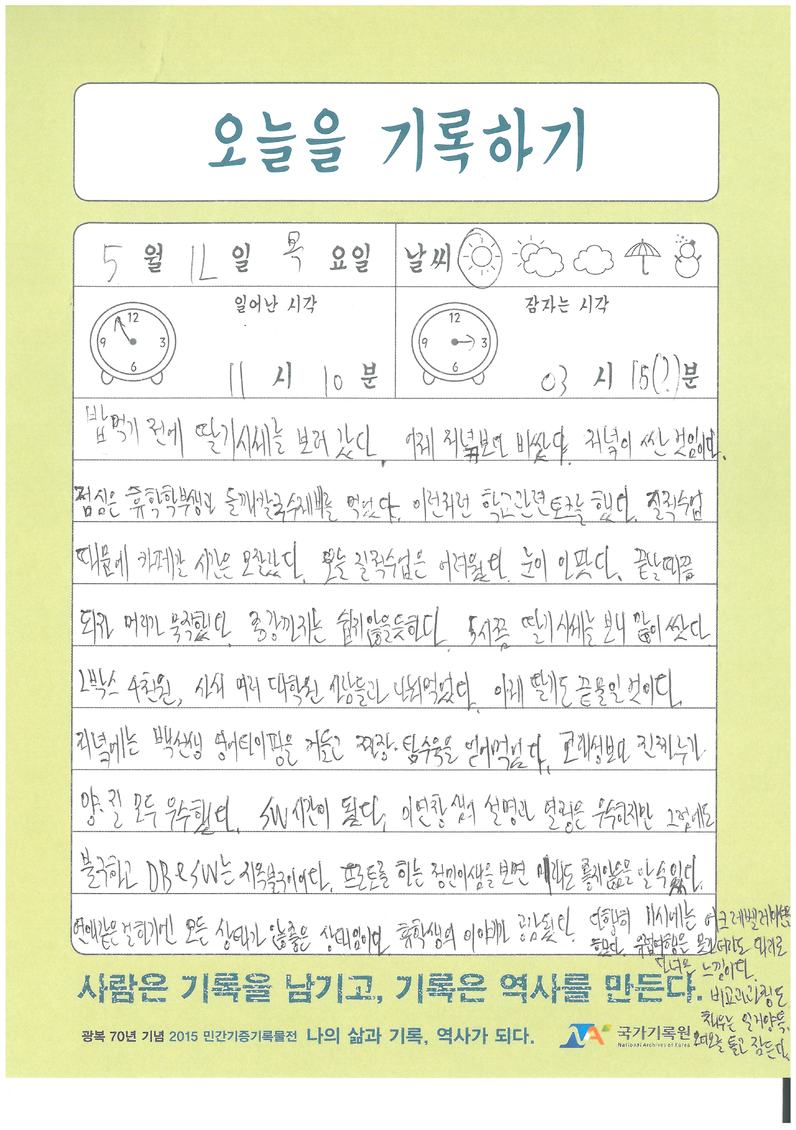 오늘을 기록하기
5 월 12 일 목 요일 날씨
일어난 시각 잠자는 시각
11 시 10 분 03 시 15(?)분
밥먹기 전에 딸기시세를 보러 갔다. 어제 저녁보다 비쌌다. 저녁이 싼 것임이다.
점심은 휴학학부생과 들깨칼국수제비를 먹었다. 이런저런 학교관련토크를 했다. 질적수업
때문에 카페갈 시간은 모잘랐다. 오늘 질적수업은 어려웠다. 눈이 아팟다. 끝날때쯤
되자 머리가 묵직했다. 종강까지는 쉽지않을듯하다. 5시쯤 딸기시세를 보니 많이 쌌다.
2박스 4천원, 사서 여러 대학원 사람들과 나눠먹었다. 이제 딸기도 끝물일 것이다.
저녁에는 백선생 영어타이핑을 거들고 짜장·탕수육을 얻어먹었다. 고래성보다 진짜루가
양·질 모두 우수했다. SW시간이 됐다. 이언창 쌤의 설명과 열정은 우수하지만 그럼에도
불구하고 DB & SW는 지옥불구이이다. 프로토를 하는 정민이쌤을 보면 때라도 좋지않음을 알 수 있다.
연애같은걸 하기엔 모든 상태가 않좋은 상태임이다. 휴학생의 이야기가 공감됐다. 다행히 마시에는
했다. 유럽여행은
다녀온 느낌이다.
비교과과정도
채우는 일거양득.
오마오늘 듣고 잠든다.
사람은 기록을 남기고, 기록은 역사를 만든다.
광복 70년 기념 2015 민간기증기록물전 나의 삶과 기록, 역사가 되다.
국가기록원
National Archives of Korea